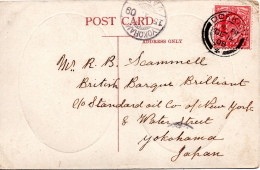 POST CARD.
ADDRESS ONLY
YOKOHAMA
Mr. R. B. Scammell
British Barque Brilliant
c/o Standard Oil Co of New York
8 Water Street
Yokohama
Japan